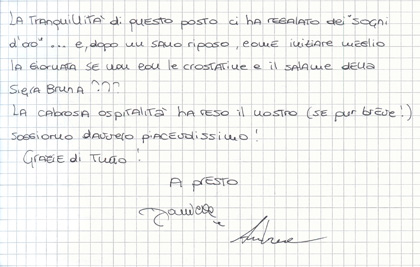 LA TRANQUILLITA' di QUESTO POSTO ci HA REGALATO dei "SOGNI
d'oro" ... e, dopo un SANO riposo, COME INIZIARE MEGLIO
LA GIORNATA SE NON CON le CROSTATINE e il SALAME della
SigRA BRUNA ???
LA CALOROSA OSPITALITA' HA RESO il NOSTRO (SE pur breve!)
SOGGIORNO davvero piacevolissimo!
GRAZIE di TUTTO!
A PRESTO
Daniele
Andrea